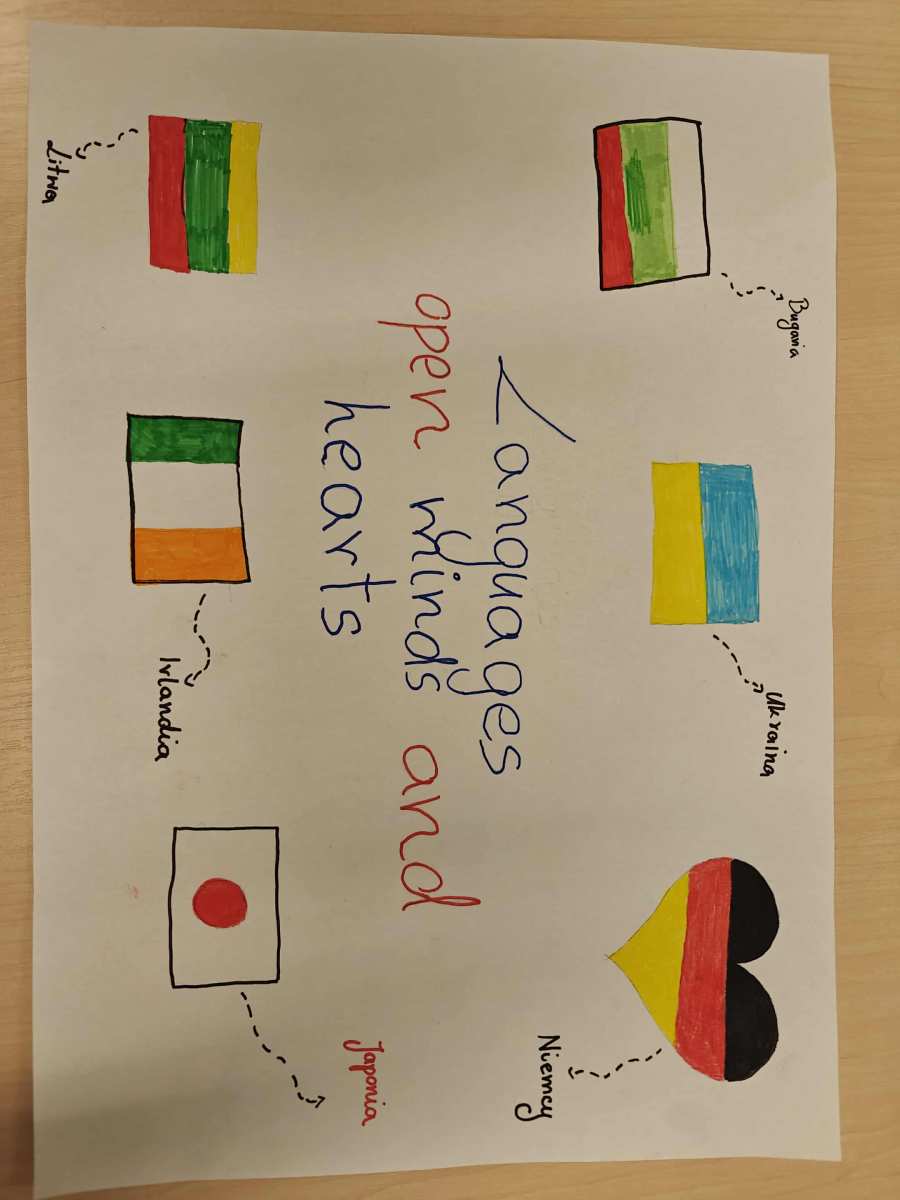 Bugaria
Ukraina
Niemcy
Languages
open minds and
hearts
Litwa
Irlandia
Japonia